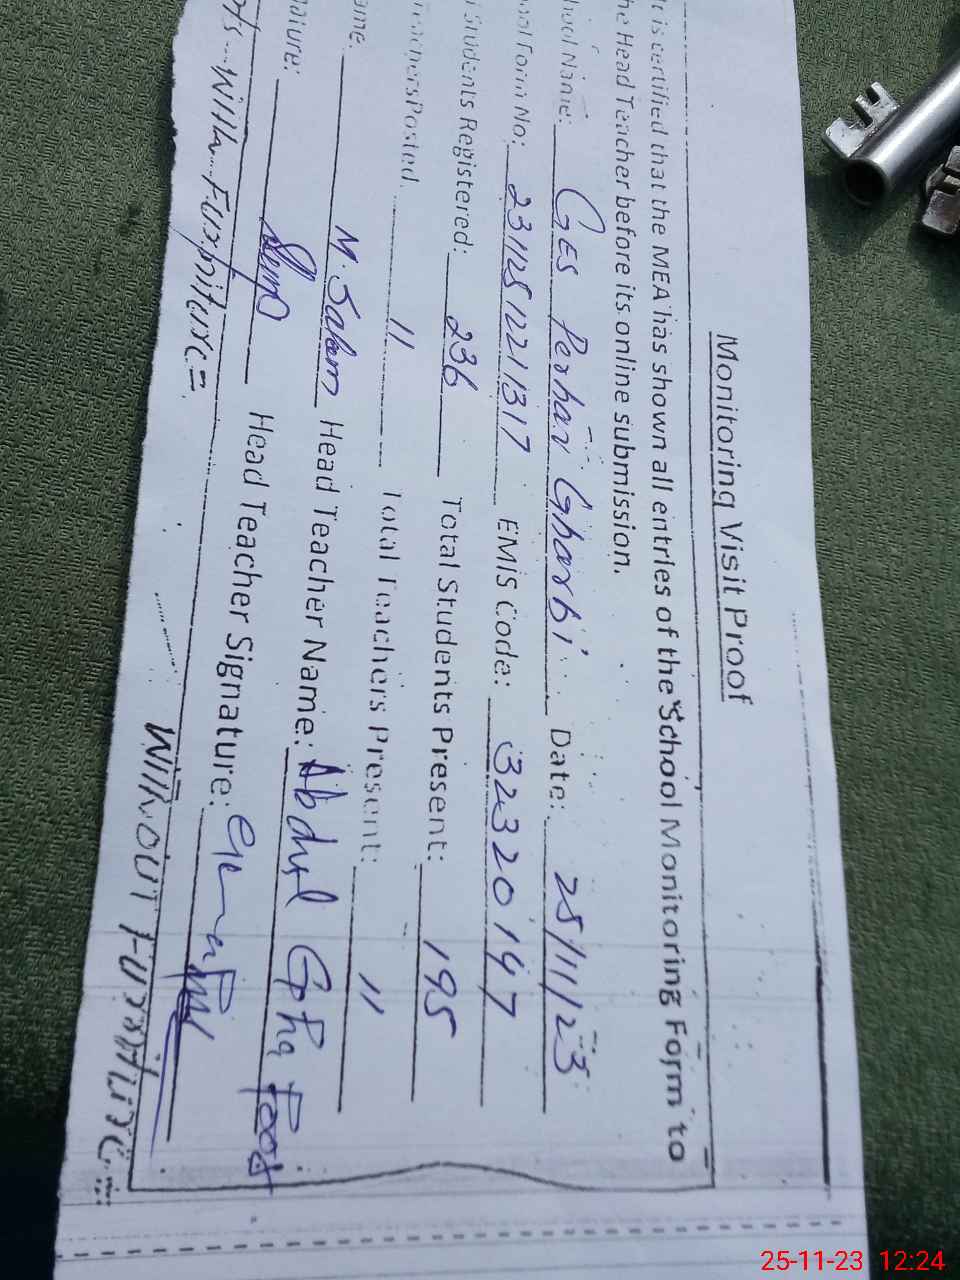 Monitoring Visit Proof
is certified that the MEA has shown all entries of the School Monitoring Form to
he Head Teacher before its online submission.
ool Name: GES Perhar Gharbi Date: 25/11/23
Form No: 2311251221317 EMIS Code: 32320147
Students Registered: 236 Total Students Present: 195
achers Posted 11 Total Teachers Present: 11
ame M. Salem Head Teacher Name: Abdul Ghafoor
nature: Head Teacher Signature:
With Furniture = Without Furniture
25-11-23 12:24